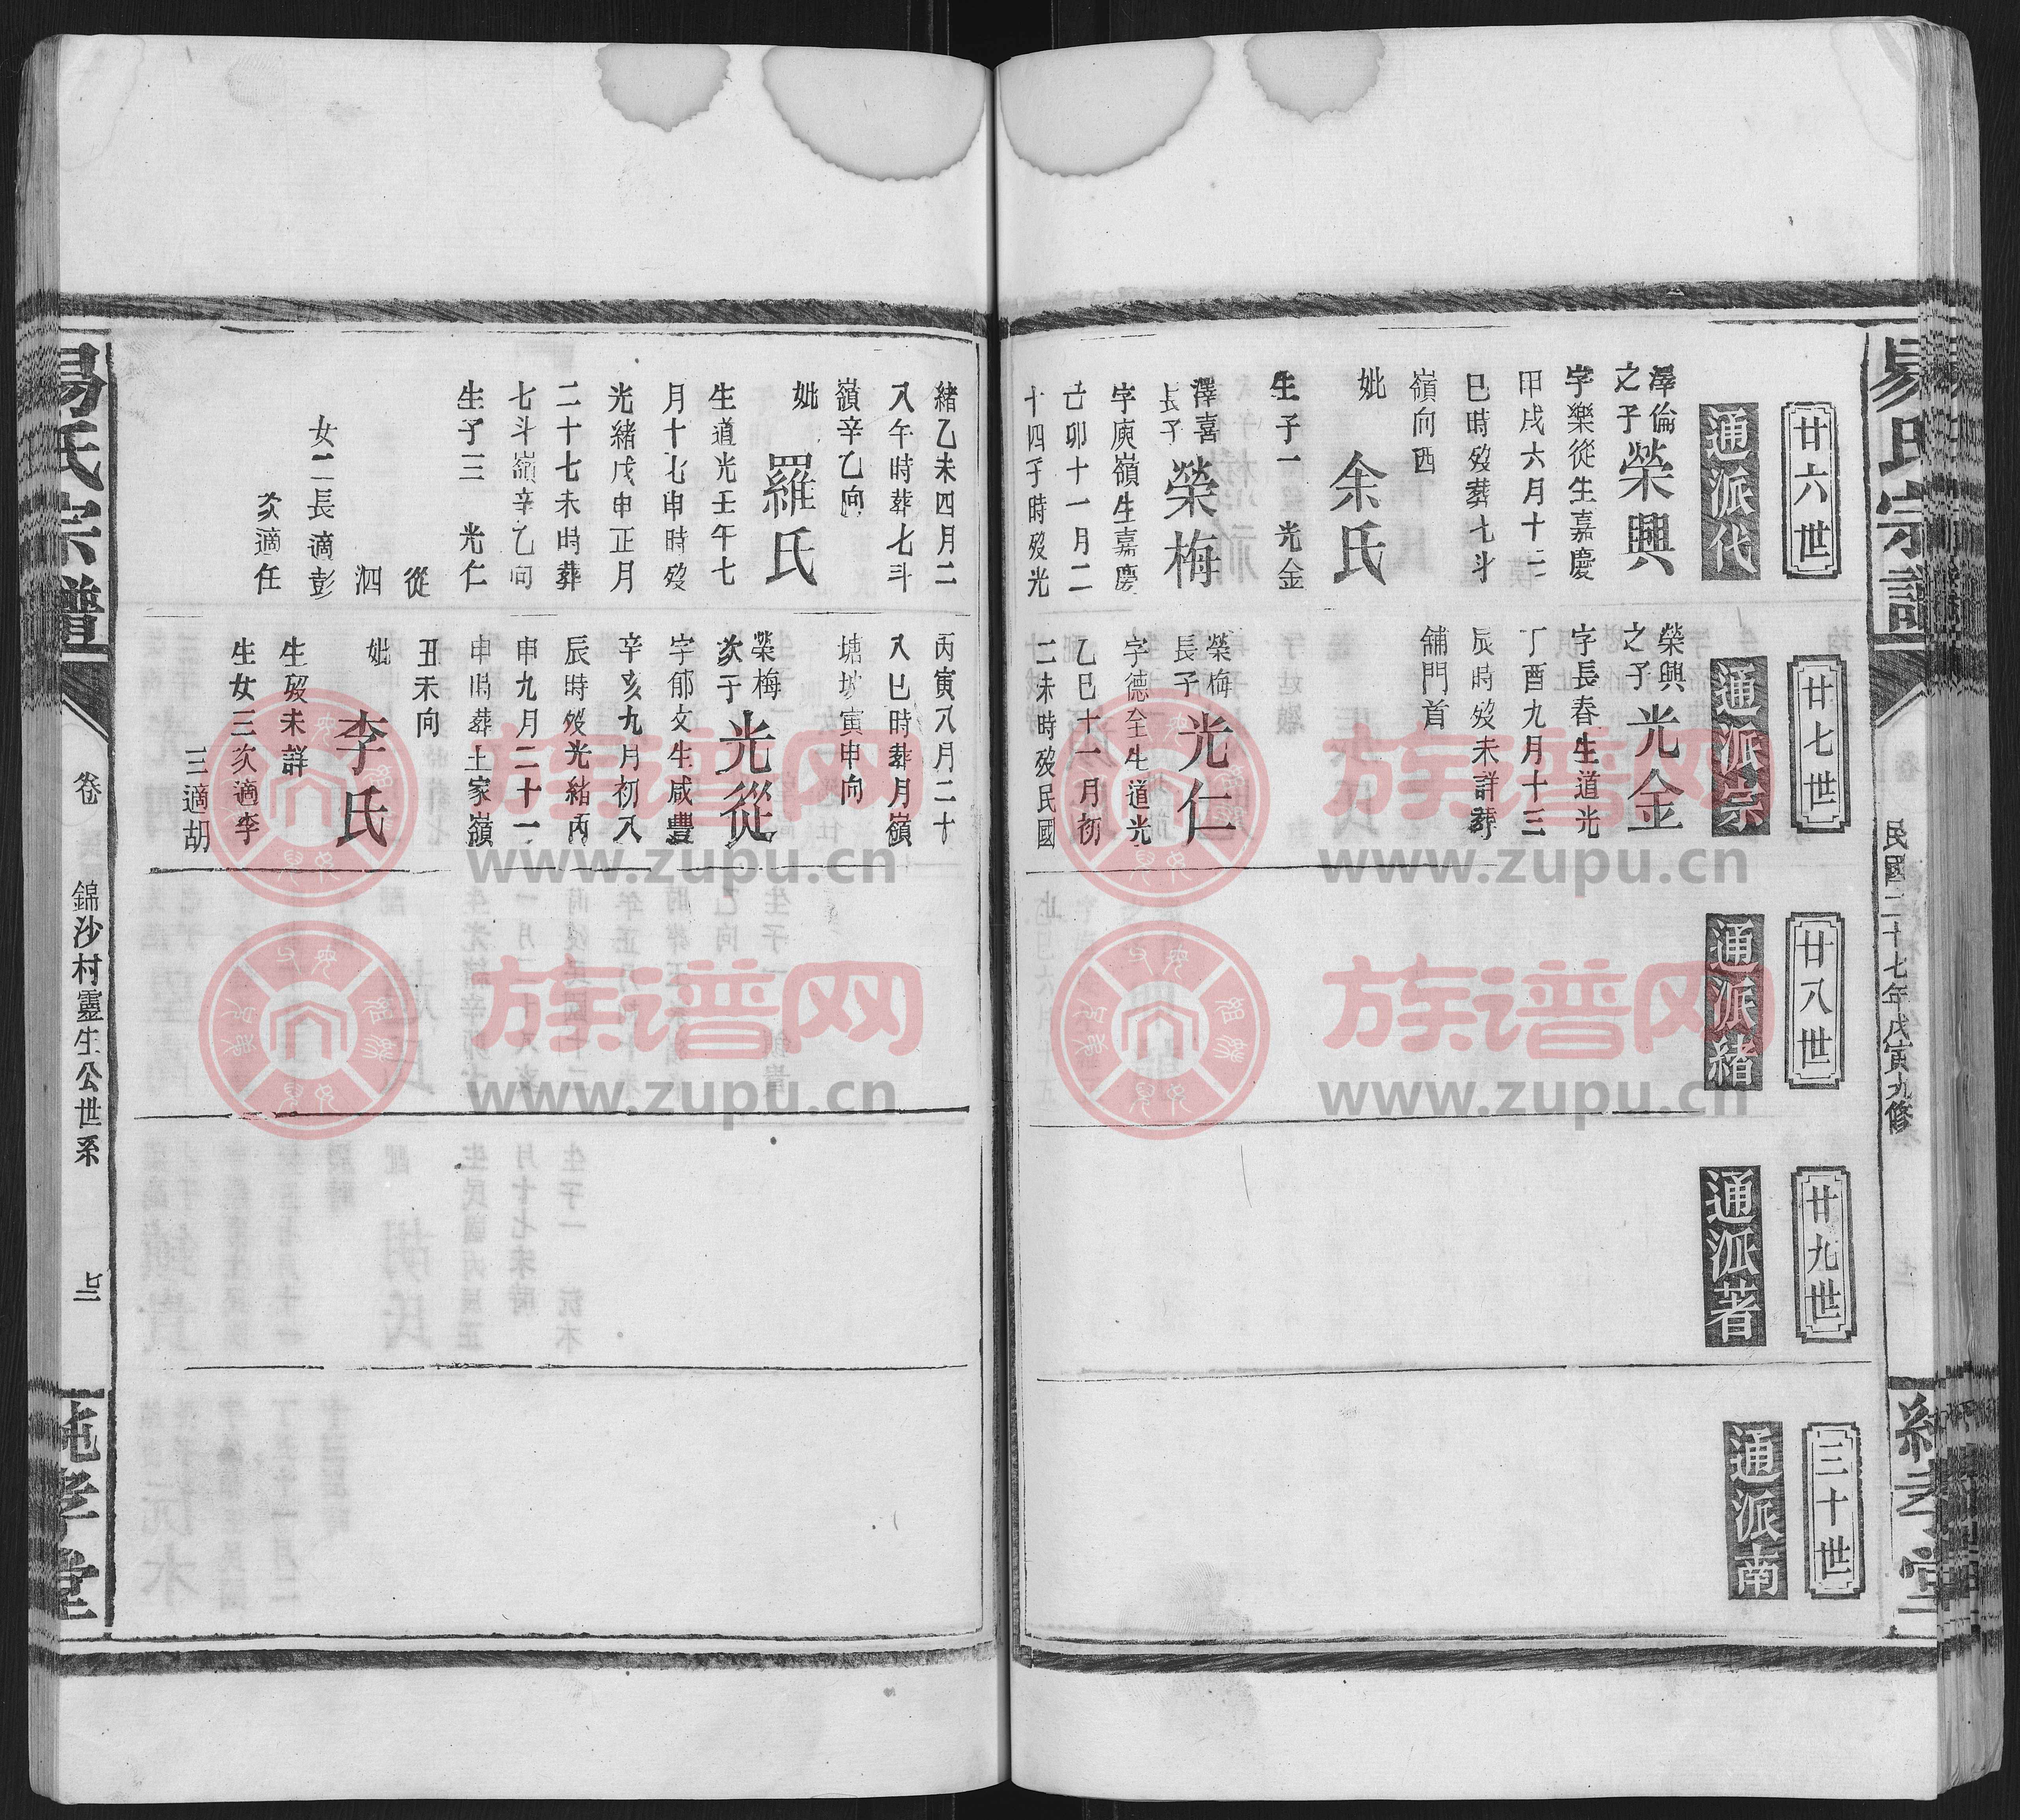 易氏宗譜
民國二十七年戊寅九修
廿六世
通派代
澤倫
之子
榮興
字樂從生嘉慶
甲戌六月十二
巳時歿葬七斗
嶺向西
妣
余氏
生子一 光金
澤喜
長子
榮梅
字庾嶺生嘉慶
己卯十一月二
十四子時歿光
緒乙未四月二
八午時葬七斗
嶺辛乙向
妣
羅氏
生道光壬午七
月十七申時歿
光緒戊申正月
二十七未時葬
七斗嶺辛乙向
生子三 光仁
從
泗
女二長適彭
次適任
廿七世
通派宗
榮興
之子
光金
字長春生道光
丁酉九月十三
辰時歿未詳葬
舖門首
榮梅
長子
光仁
字德全生道光
乙巳十一月初
二未時歿民國
丙寅八月二十
八巳時葬月嶺
塘坡寅申向
榮梅
次子
光從
字郁文生咸豐
辛亥九月初八
辰時歿光緒丙
申九月二十一
申時葬土家嶺
丑未向
妣
李氏
生歿未詳
生女三次適李
三適胡
廿八世
通派緒
廿九世
通派著
三十世
通派南
易氏宗譜
卷
錦沙村靈生公世系
孝堂
族谱网
www.zupu.cn
族谱网
www.zupu.cn
族谱网
www.zupu.cn
族谱网
www.zupu.cn